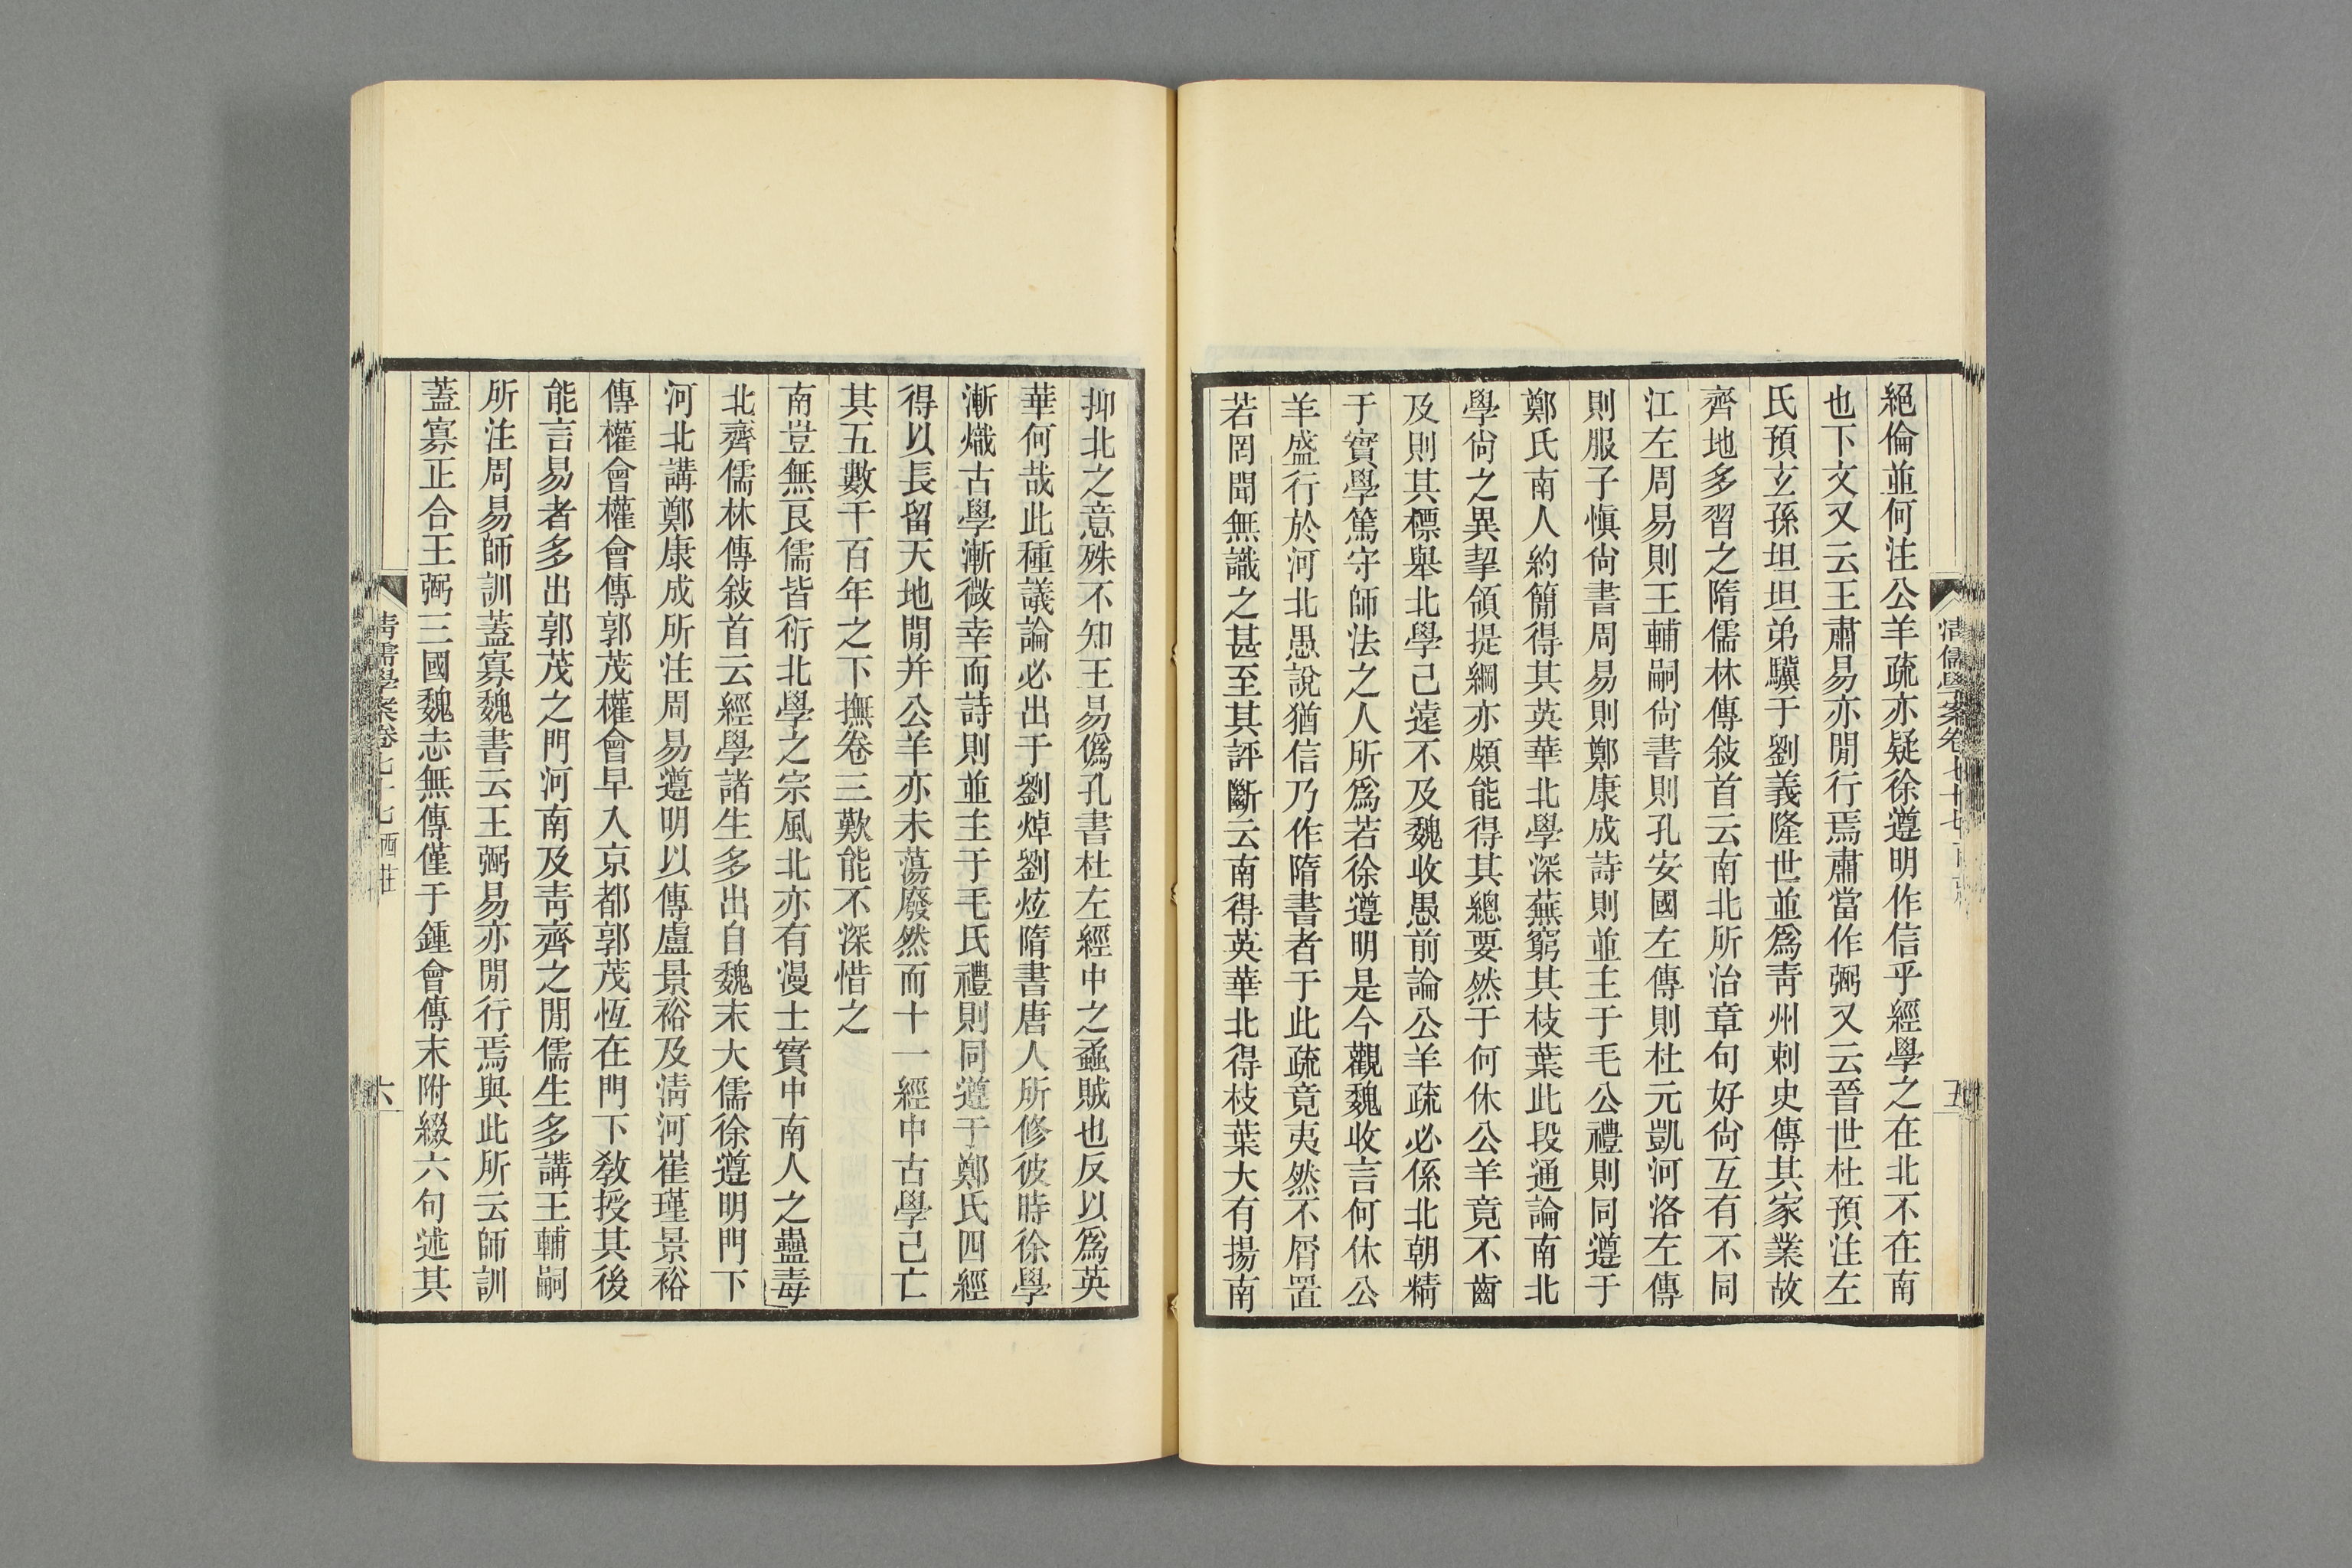 清儒學案卷七十七
五
絕倫並何注公羊疏亦疑徐遵明作信乎經學之在北不在南
也下文又云王肅易亦閒行焉肅當作弼又云晉世杜預注左
氏預玄孫坦坦弟驥于劉義隆世並爲青州刺史傳其家業故
齊地多習之隋儒林傳敍首云南北所治章句好尙互有不同
江左周易則王輔嗣尙書則孔安國左傳則杜元凱河洛左傳
則服子愼尙書周易則鄭康成詩則並主于毛公禮則同遵于
鄭氏南人約簡得其英華北學深蕪窮其枝葉此段通論南北
學尙之異挈領提綱亦頗能得其總要然于何休公羊竟不齒
及則其標舉北學己遠不及魏收愚前論公羊疏必係北朝精
于實學篤守師法之人所爲若徐遵明是今觀魏收言何休公
羊盛行於河北愚說猶信乃作隋書者于此疏竟夷然不屑置
若罔聞無識之甚至其評斷云南得英華北得枝葉大有揚南
抑北之意殊不知王易僞孔書杜左經中之蟊賊也反以爲英
華何哉此種議論必出于劉焯劉炫隋書唐人所修彼時徐學
漸熾古學漸微幸而詩則並主于毛氏禮則同遵于鄭氏四經
得以長留天地閒并公羊亦未蕩廢然而十一經中古學己亡
其五數千百年之下撫卷三歎能不深惜之
南豈無良儒皆衍北學之宗風北亦有漫士實中南人之蠱毒
北齊儒林傳敍首云經學諸生多出自魏末大儒徐遵明門下
河北講鄭康成所注周易遵明以傳盧景裕及淸河崔瑾景裕
傳權會權會傳郭茂權會早入京都郭茂恆在門下敎授其後
能言易者多出郭茂之門河南及靑齊之閒儒生多講王輔嗣
所注周易師訓蓋寡魏書云王弼易亦閒行焉與此所云師訓
蓋寡正合王弼三國魏志無傳僅于鍾會傳末附綴六句述其
淸儒學案卷七十七 西莊
六